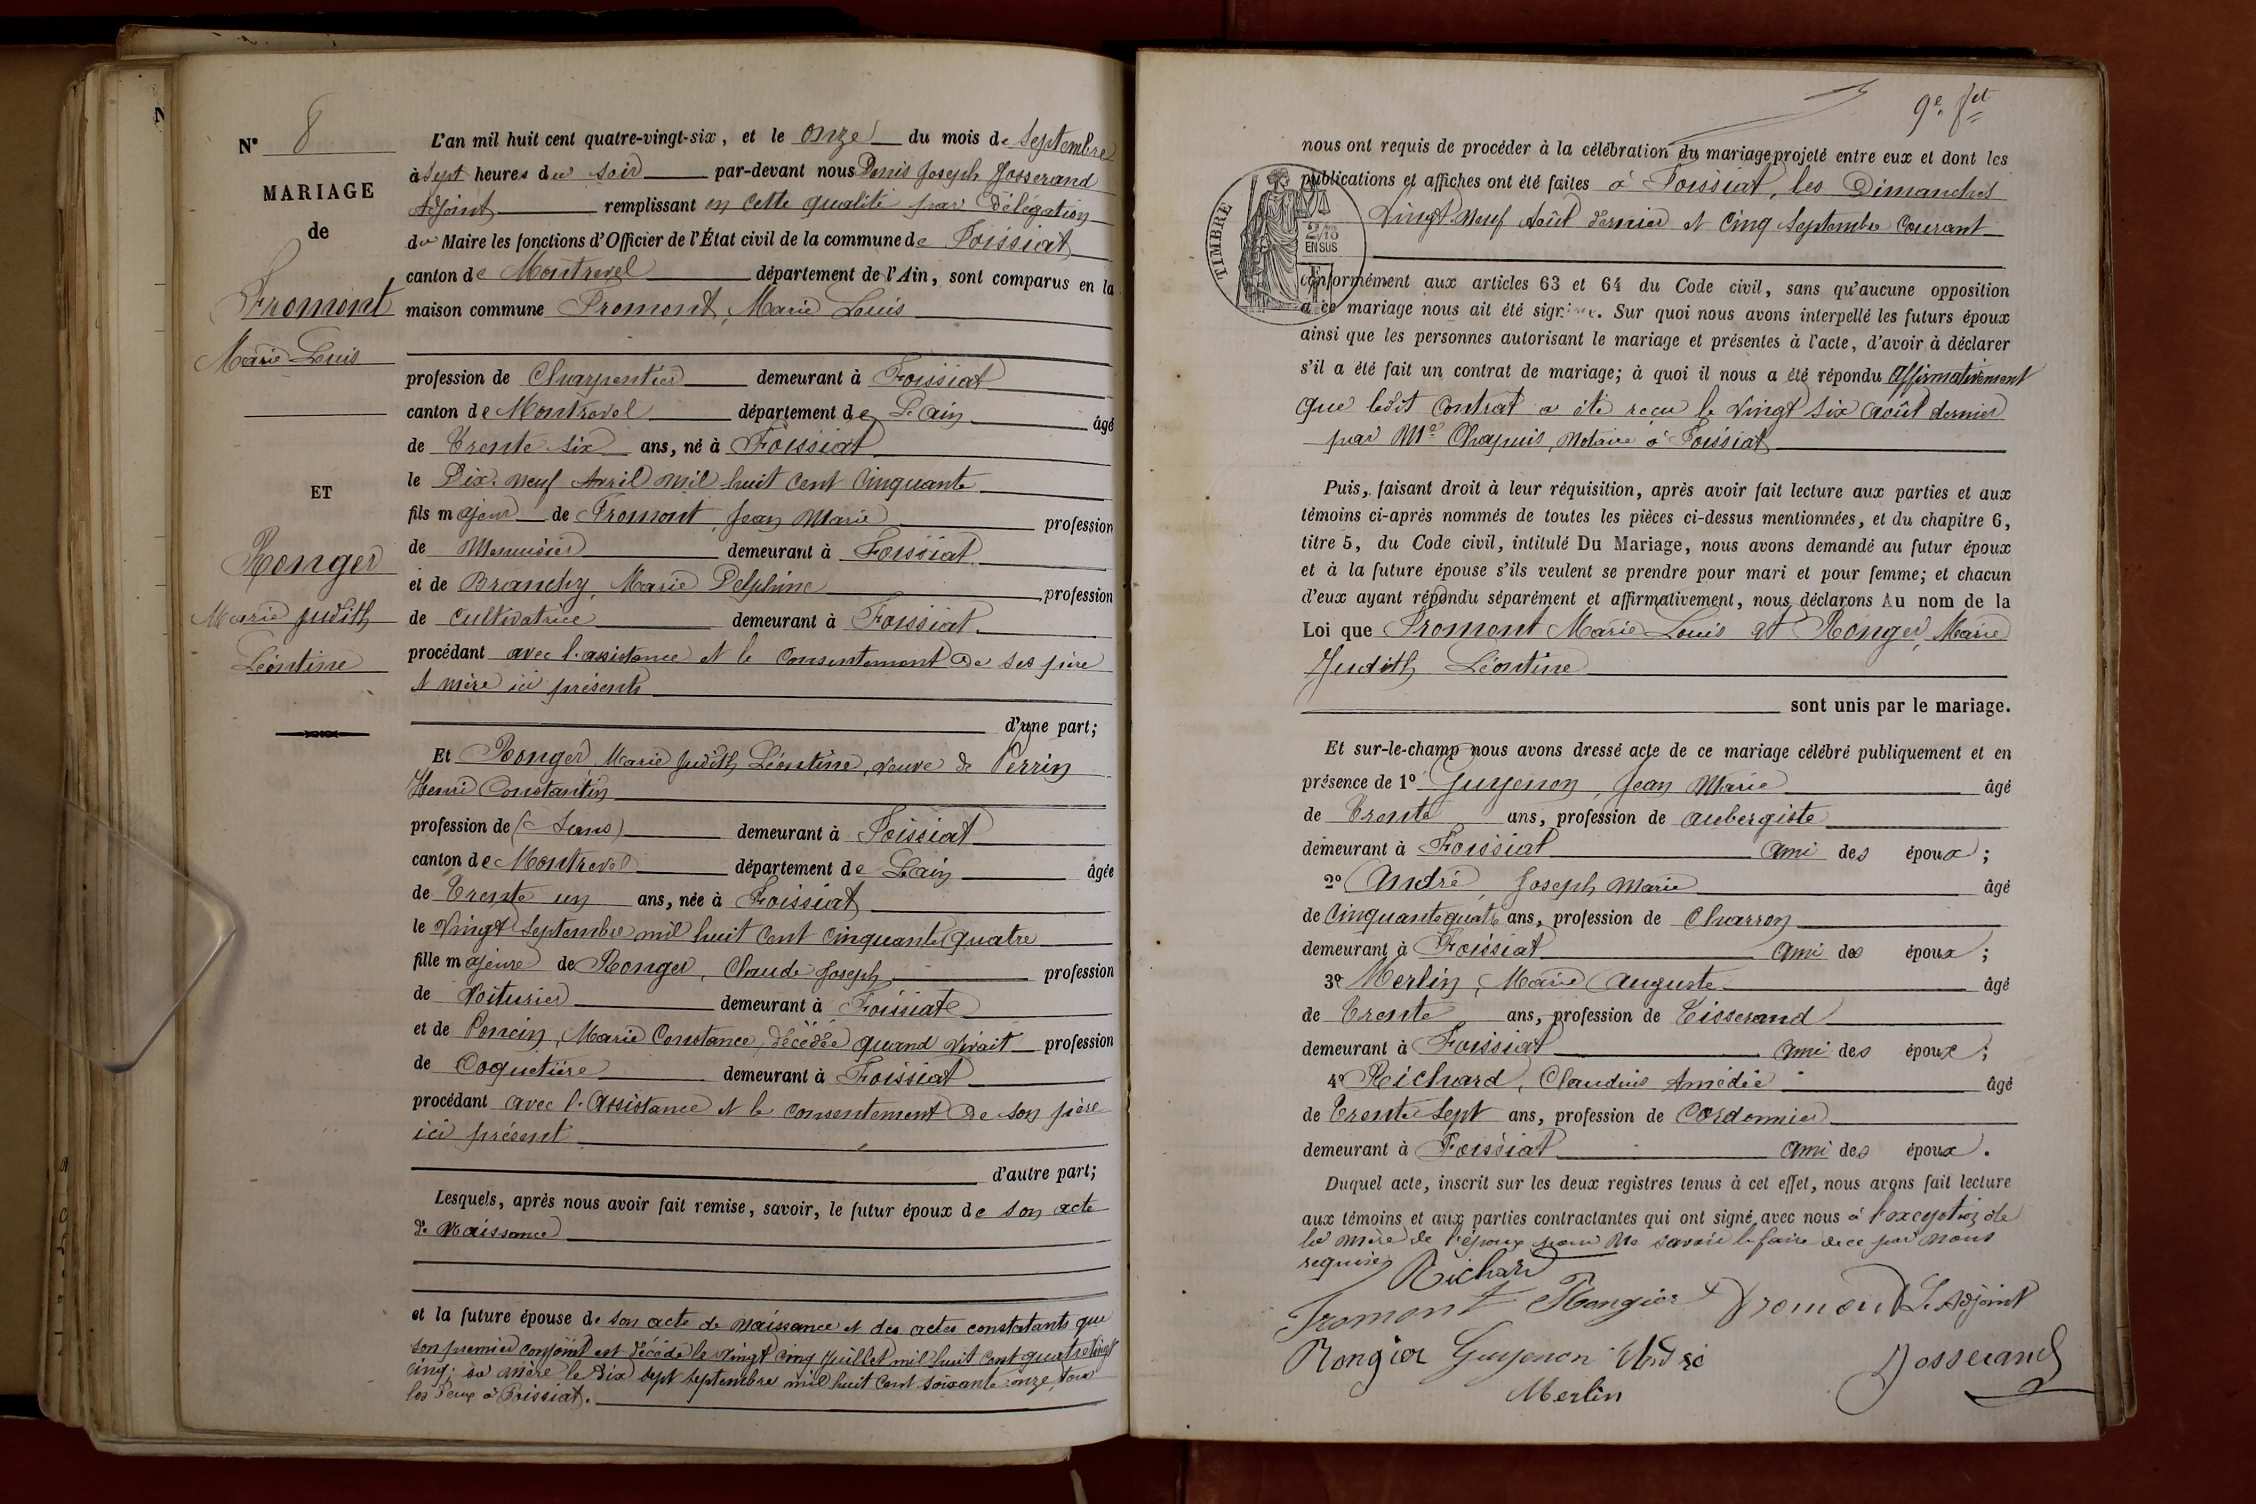 N° 8
MARIAGE
de
Fromont
Marie Louis
ET
Ronger
Marie Judith
Léontine
L'an mil huit cent quatre-vingt-six, et le onze du mois de Septembre
à Sept heures du soir par-devant nous Denis Joseph Josserand
Adjoint remplissant en cette qualité par délégation
du Maire les fonctions d'Officier de l'État civil de la commune de Foissiat
canton de Montrevel département de l'Ain, sont comparus en la
maison commune Fromont, Marie Louis
profession de Charpentier demeurant à Foissiat
canton de Montrevel département de L'ain âgé
de Trente six ans, né à Foissiat
le Dix-neuf Avril mil huit cent cinquante
fils majeur de Fromont, Jean Marie profession
de Menuisier demeurant à Foissiat
et de Branchy, Marie Delphine profession
de Cultivatrice demeurant à Foissiat
procédant avec l'assistance et le consentement de ses père
et mère ici présents
d'une part;
Et Ronger Marie Judith Léontine, veuve de Perrin
Henri Constantin
profession de (Sans) demeurant à Foissiat
canton de Montrevel département de L'ain âgée
de Trente un ans, née à Foissiat
le Vingt Septembre mil huit cent cinquante quatre
fille majeure de Ronger, Claude Joseph profession
de Voiturier demeurant à Foissiat
et de Poncin, Marie Constance, décédée quand vivait profession
de Coquetière demeurant à Foissiat
procédant avec l'assistance et le consentement de son père
ici présent
d'autre part;
Lesquels, après nous avoir fait remise, savoir, le futur époux de son acte
de Naissance
et la future épouse de son acte de naissance et des actes constatants que
son premier conjoint est décédé le vingt cinq Juillet mil huit cent quatre vingt
cinq; sa mère le dix sept septembre mil huit cent soixante onze, tous
les deux à Foissiat.
9e fet
nous ont requis de procéder à la célébration du mariage projeté entre eux et dont les
publications et affiches ont été faites à Foissiat, les Dimanches
Vingt neuf Août dernier et Cinq Septembre Courant
TIMBRE
2/10
EN SUS
conformément aux articles 63 et 64 du Code civil, sans qu'aucune opposition
à ce mariage nous ait été signifiée. Sur quoi nous avons interpellé les futurs époux
ainsi que les personnes autorisant le mariage et présentes à l'acte, d'avoir à déclarer
s'il a été fait un contrat de mariage; à quoi il nous a été répondu Affirmativement
que ledit Contrat a été reçu le Vingt six Août dernier
par Me Chapuis, Notaire à Foissiat
Puis, faisant droit à leur réquisition, après avoir fait lecture aux parties et aux
témoins ci-après nommés de toutes les pièces ci-dessus mentionnées, et du chapitre 6,
titre 5, du Code civil, intitulé Du Mariage, nous avons demandé au futur époux
et à la future épouse s'ils veulent se prendre pour mari et pour femme; et chacun
d'eux ayant répondu séparément et affirmativement, nous déclarons Au nom de la
Loi que Fromont Marie Louis et Ronger, Marie
Judith Léontine
sont unis par le mariage.
Et sur-le-champ nous avons dressé acte de ce mariage célébré publiquement et en
présence de 1° Guyenon, Jean Marie âgé
de Trente ans, profession de aubergiste
demeurant à Foissiat ami des époux;
2° André, Joseph Marie âgé
de Cinquante quatre ans, profession de Charron
demeurant à Foissiat ami des époux;
3° Merlin, Marie Auguste âgé
de Trente ans, profession de Tisserand
demeurant à Foissiat ami des époux;
4° Richard, Claudius Amédée âgé
de Trente Sept ans, profession de Cordonnier
demeurant à Foissiat ami des époux.
Duquel acte, inscrit sur les deux registres tenus à cet effet, nous avons fait lecture
aux témoins et aux parties contractantes qui ont signé avec nous à l'exception de
la mère de l'époux pour ne savoir le faire de ce par nous
requise
Richard
Fromont Rongier Fromont L'Adjoint
Rongier Guyenon André Josserand
Merlin